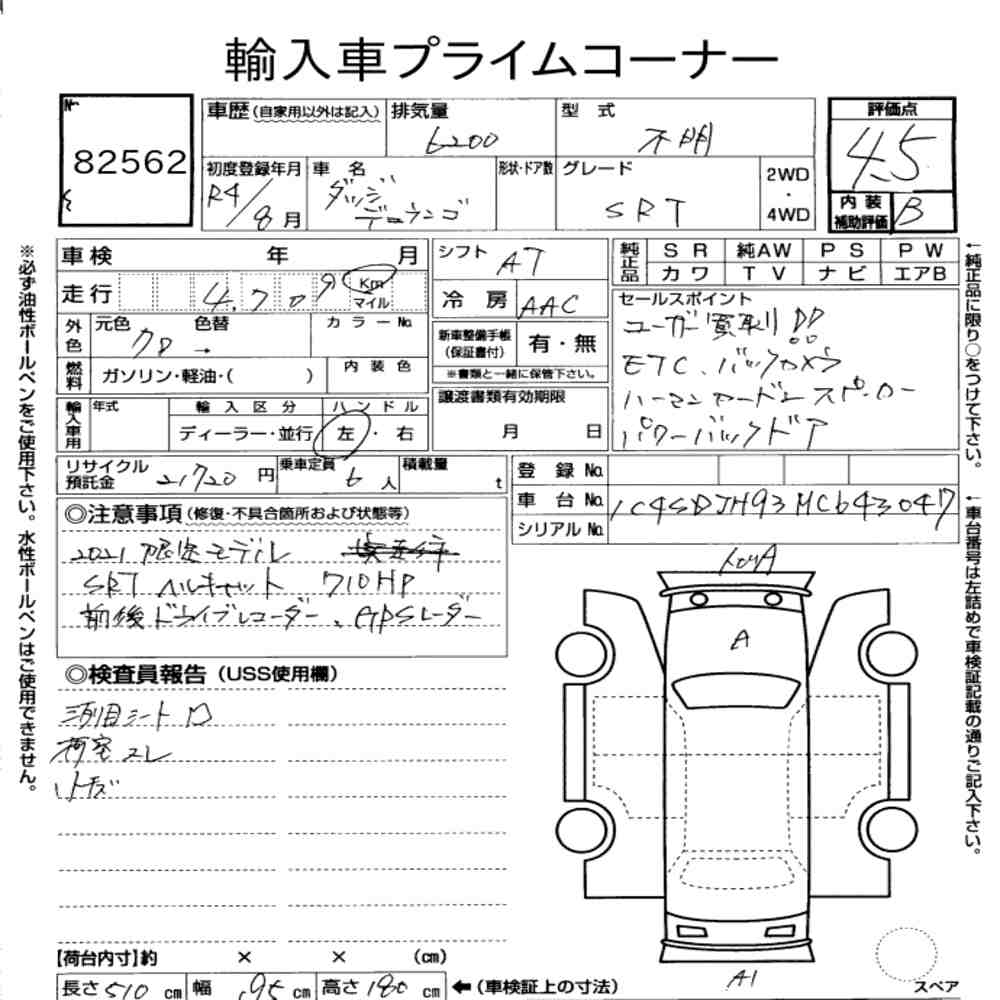 輸入車プライムコーナー
№
82562
車歴(自家用以外は記入)
排気量
6200
型 式
不明
評価点
4.5
初度登録年月
R4/8月
車 名
ダッジ
デュランゴ
形状・ドア数
グレード
SRT
2WD
・
4WD
内 装
補助評価
B
車検 年 月
走行 4,709 Km
マイル
外色
元色 色替
カラー№
燃料
ガソリン・軽油・( )
内 装 色
輸入車用
年式
輸 入 区 分
ディーラー・並行
ハ ン ド ル
左・右
リサイクル
預託金
21720 円
乗車定員
6 人
積載量
t
シフト
AT
冷 房
AAC
新車整備手帳
(保証書付)
有・無
※書類と一緒に保管下さい。
譲渡書類有効期限
月 日
純正品
SR 純AW PS PW
カワ TV ナビ エアB
セールスポイント
ユーザー買取り!!
ETC、バックカメラ
ハーマンカードンスピーカー
パワーバックドア
登 録 №
車 台 №
1C4SDJH93MC643047
シリアル №
◎注意事項(修復・不具合箇所および状態等)
2021 限定モデル
SRT ヘルキャット 710HP
前後ドライブレコーダー、GPSレーダー
◎検査員報告(USS使用欄)
三列目シート
荷室スレ
小キズ
A
A1
スペア
【荷台内寸】約 × × (cm)
長さ510cm 幅195cm 高さ180cm
←(車検証上の寸法)
※必ず油性ボールペンをご使用下さい。水性ボールペンはご使用できません。
←純正品に限り○をつけて下さい。
←車台番号は左詰めで車検証記載の通りご記入下さい。